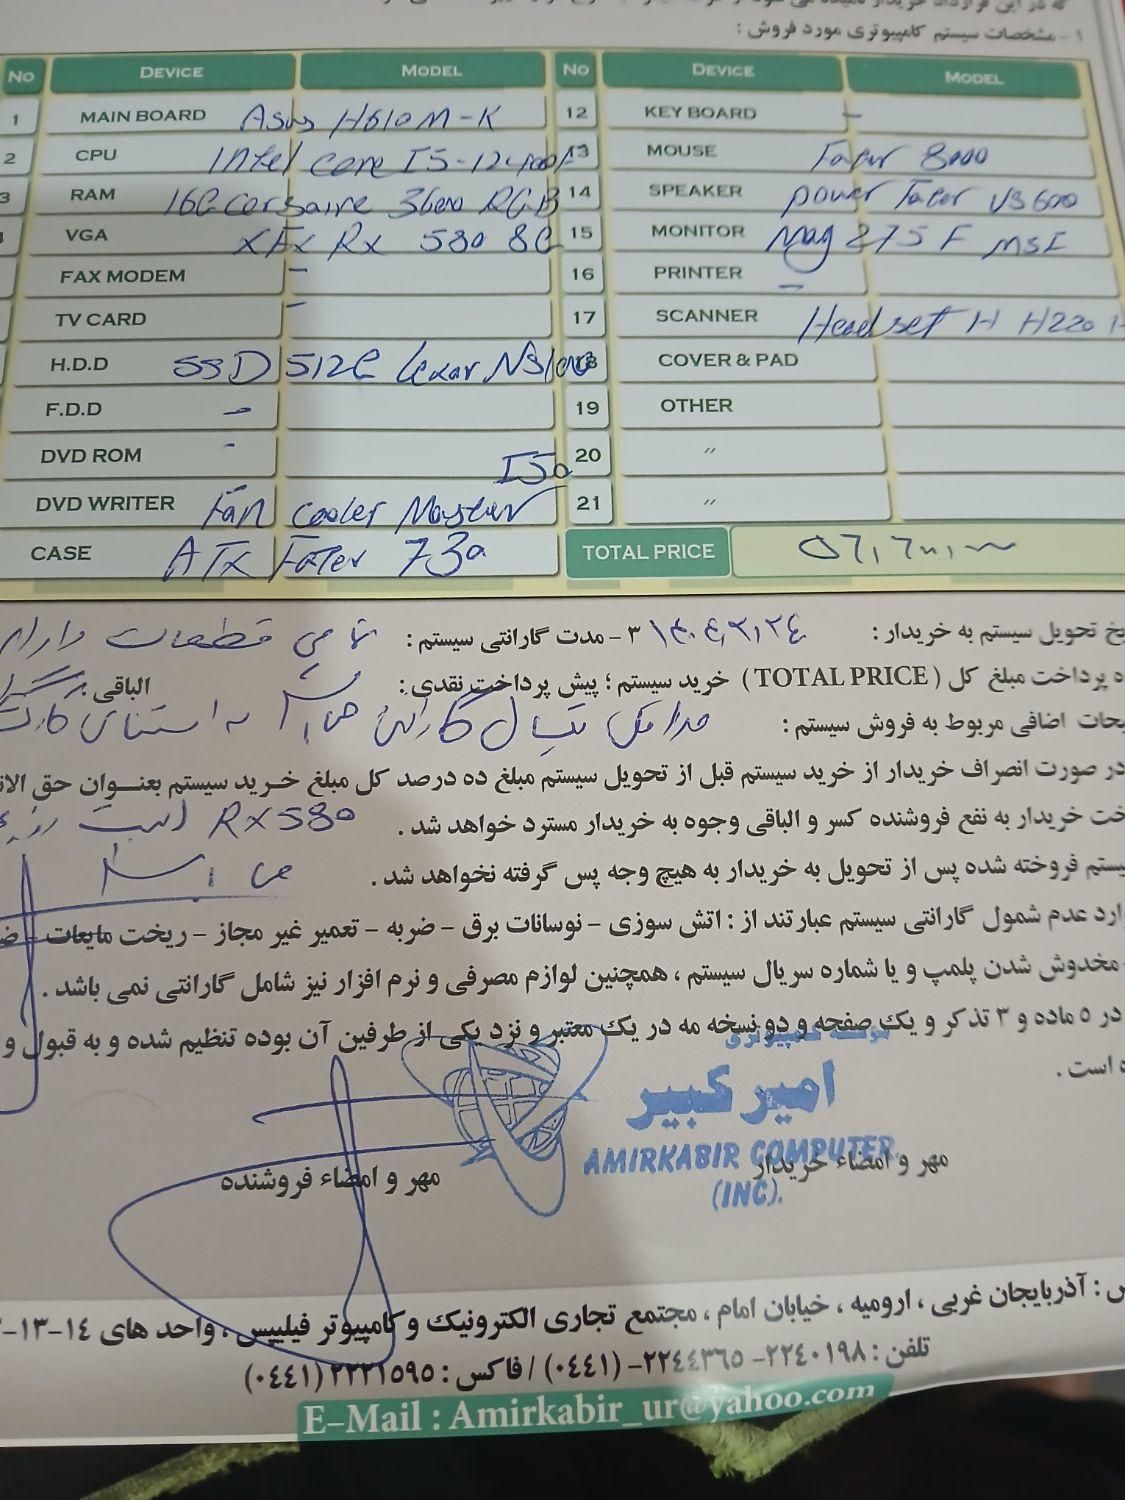 ۱ - مشخصات سیستم کامپیوتری مورد فروش :
No DEVICE MODEL No DEVICE MODEL
1 MAIN BOARD Asus H610M-K 12 KEY BOARD -
2 CPU Intel core I5-12400F 13 MOUSE Fater 8000
3 RAM 16G corsaire 3600 RGB 14 SPEAKER power Fater VS600
VGA XFX RX 580 8G 15 MONITOR Mag 275F MSI
FAX MODEM - 16 PRINTER -
TV CARD - 17 SCANNER Headset H H220
H.D.D SSD 512G Lexar 18 COVER & PAD
F.D.D - 19 OTHER
DVD ROM - 20 〃
DVD WRITER Fan cooler Master I50 21 〃
CASE ATX Fater 730 TOTAL PRICE
تحویل سیستم به خریدار : ۳ - مدت گارانتی سیستم : تمامی قطعات دارای
پرداخت مبلغ کل ( TOTAL PRICE ) خرید سیستم ؛ پیش پرداخت نقدی : الباقی :
اضافی مربوط به فروش سیستم : حداقل یکسال گارانتی به استثنای کارت
در صورت انصراف خریدار از خرید سیستم قبل از تحویل سیستم مبلغ ده درصد کل مبلغ خرید سیستم بعنوان حق
خریدار به نفع فروشنده کسر و الباقی وجوه به خریدار مسترد خواهد شد . RX580 است
فروخته شده پس از تحویل به خریدار به هیچ وجه پس گرفته نخواهد شد .
عدم شمول گارانتی سیستم عبارتند از : اتش سوزی - نوسانات برق - ضربه - تعمیر غیر مجاز - ریخت مایعات -
مخدوش شدن پلمپ و یا شماره سریال سیستم ، همچنین لوازم مصرفی و نرم افزار نیز شامل گارانتی نمی باشد .
در ۵ ماده و ۳ تذکر و یک صفحه و دو نسخه مه در یک معتبر و نزد یکی از طرفین آن بوده تنظیم شده و به قبول و
است .
موسسه کامپیوتری
امیر کبیر
AMIRKABIR COMPUTER
(INC).
مهر و امضاء خریدار
مهر و امضاء فروشنده
: آذربایجان غربی ، ارومیه ، خیابان امام ، مجتمع تجاری الکترونیک و کامپیوتر فیلیپس ، واحد های ۱۴-۱۳-
تلفن : ۲۲۴۰۱۹۸- ۲۲۴۴۳۶۵- (۰۴۴۱) / فاکس : ۲۲۲۱۵۹۵ (۰۴۴۱)
E-Mail : Amirkabir_ur@yahoo.com